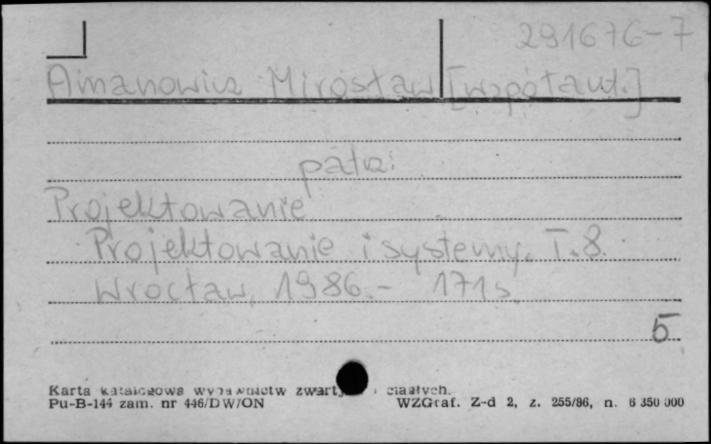 291676-7
Amanowicz Mirosław [współaut.]
patrz:
Projektowanie
Projektowanie i systemy. T.8.
Wrocław, 1986.- 171s.
5
Karta katalogowa wydawnictw zwartych i ciągłych.
Pu-B-144 zam. nr 446/DW/ON WZGraf. Z-d 2, z. 255/86, n. 6 350 000